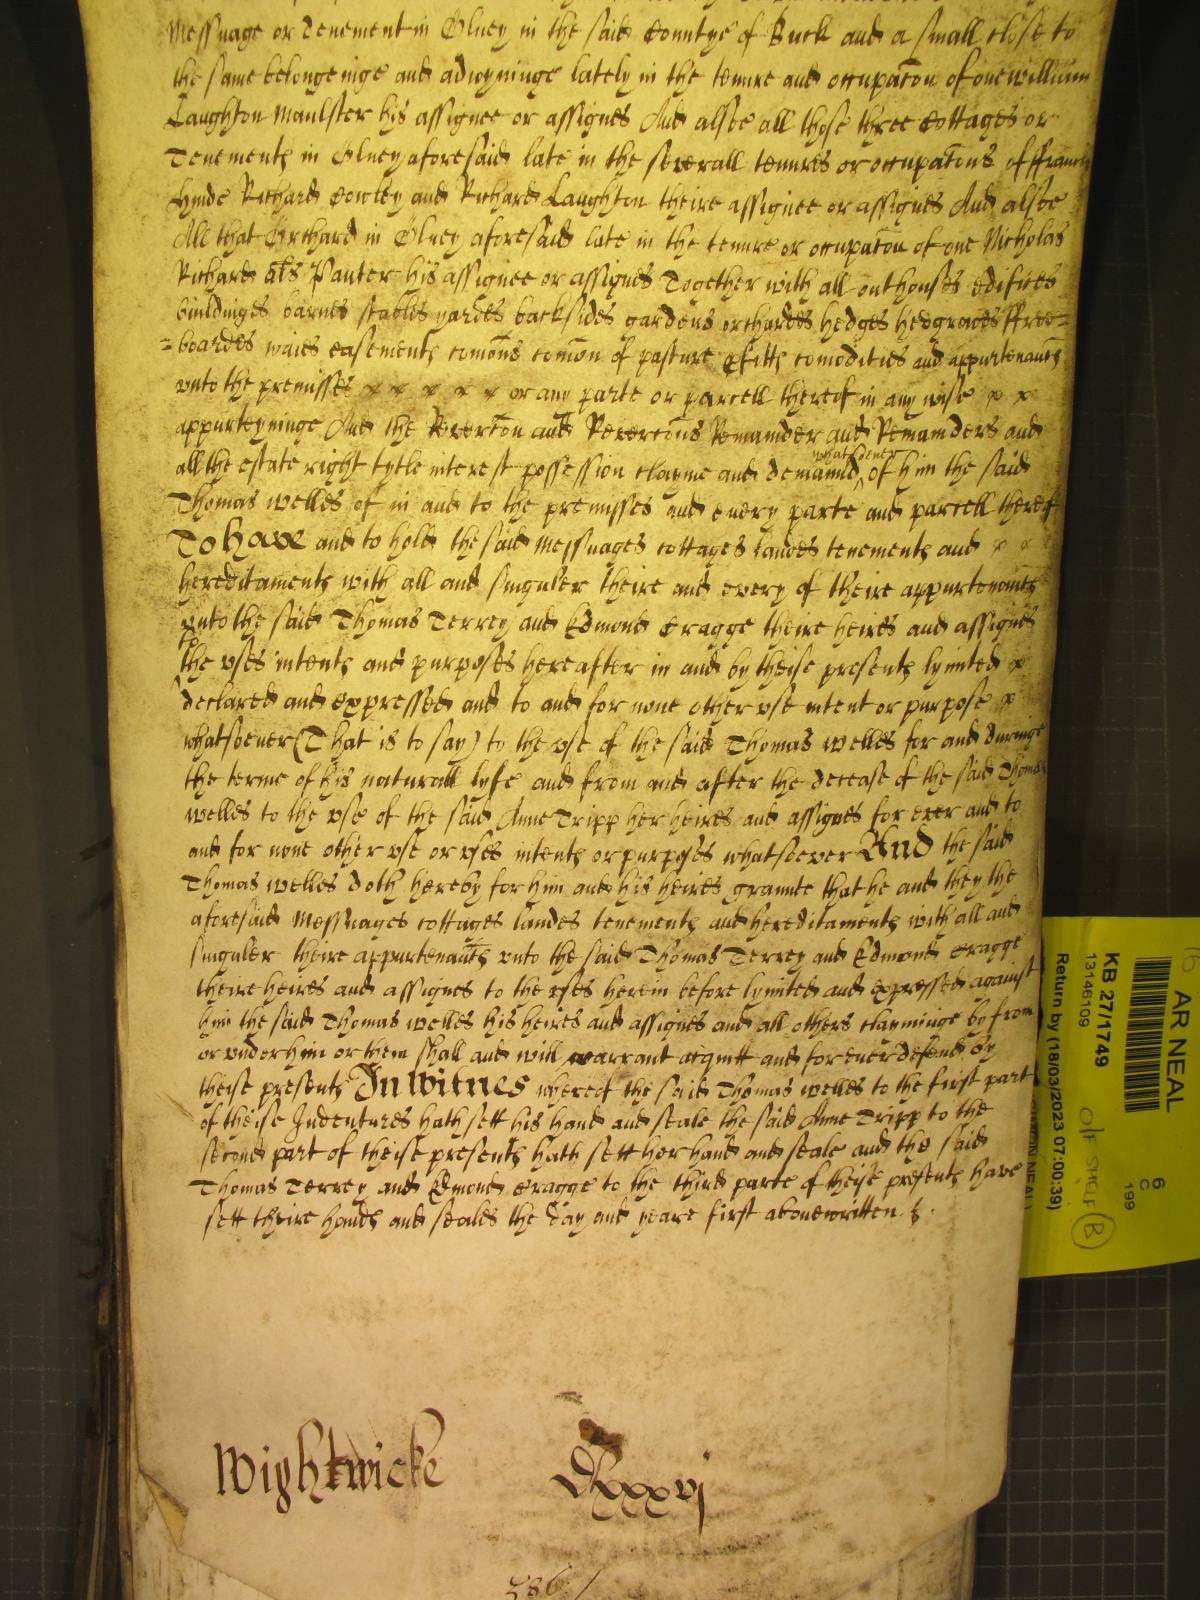 Messuage or Tenement in Olney in the said Countye of Buck and a small close to
the same belongeinge and adioyninge lately in the tenure and occupacōn of one william
Laughton Maulster his assignee or assignes And alsoe all those three Cottages or
Tenements in Olney aforesaid late in the severall tenures or occupacōns of ffrancis
Hynde Richard Cowley and Richard Laughton theire assignee or assignes And alsoe
All that Orchard in Olney aforesaid late in the tenure or occupacōn of one Nicholas
Richard als Panter his assignee or assignes Together with all outhouses edifices
buildinges barnes stables yardes backsides gardens orchardes hedges hedgrowes ffree=
=boardes waies easements comons comon of pasture pfitts comodities and appurtenancs
vnto the premisses x x x x x or any parte or parcell thereof in any wise x x
appurteyninge And the Revercōn and Revercōns Remainder and Remainders and
all the estate right tytle interest possession clayme and demaund whatsoever of him the said
Thomas welles of in and to the premisses and every parte and parcell thereof
To have and to hold the said Messuages cottages landes tenements and x x
hereditaments with all and singuler theire and every of theire appurtenancs
vnto the said Thomas Terrey and Edmond Cragge theire heires and assignes
to
the vses intents and purposes hereafter in and by theise presents lymited x
declared and expressed and to and for none other vse intent or purpose x
whatsoever (That is to say) to the vse of the said Thomas welles for and duringe
the terme of his naturall lyfe and from and after the decease of the said Thomas
welles to the vse of the said Anne Tripp her heires and assignes for ever and to
and for none other vse or vses intents or purposes whatsoever And the said
Thomas welles doth hereby for him and his heires graunte that he and they the
aforesaid Messuages cottages landes tenements and hereditaments with all and
singuler theire appurtenancs vnto the said Thomas Terrey and Edmond Cragge
theire heires and assignes to the vses herein before lymited and expressed against
him the said Thomas welles his heires and assignes and all others clayminge by from
or vnder him or them shall and will warrant acquitt and for ever defend by
theise presents In witnes whereof the said Thomas welles to the first part
of theise Indentures hath sett his hand and seale the said Anne Tripp to the
second part of theise presents hath sett her hand and seale and the said
Thomas Terrey and Edmond Cragge to the third parte of theise presents have
sett theire hands and seales the day and yeare first abovewritten
Wightwicke
xxxvj
586
AR NEAL
KB 27/1749
13146109
Return by (18/03/2023 07:00:39)
6
C
199
O/F SHELF
B